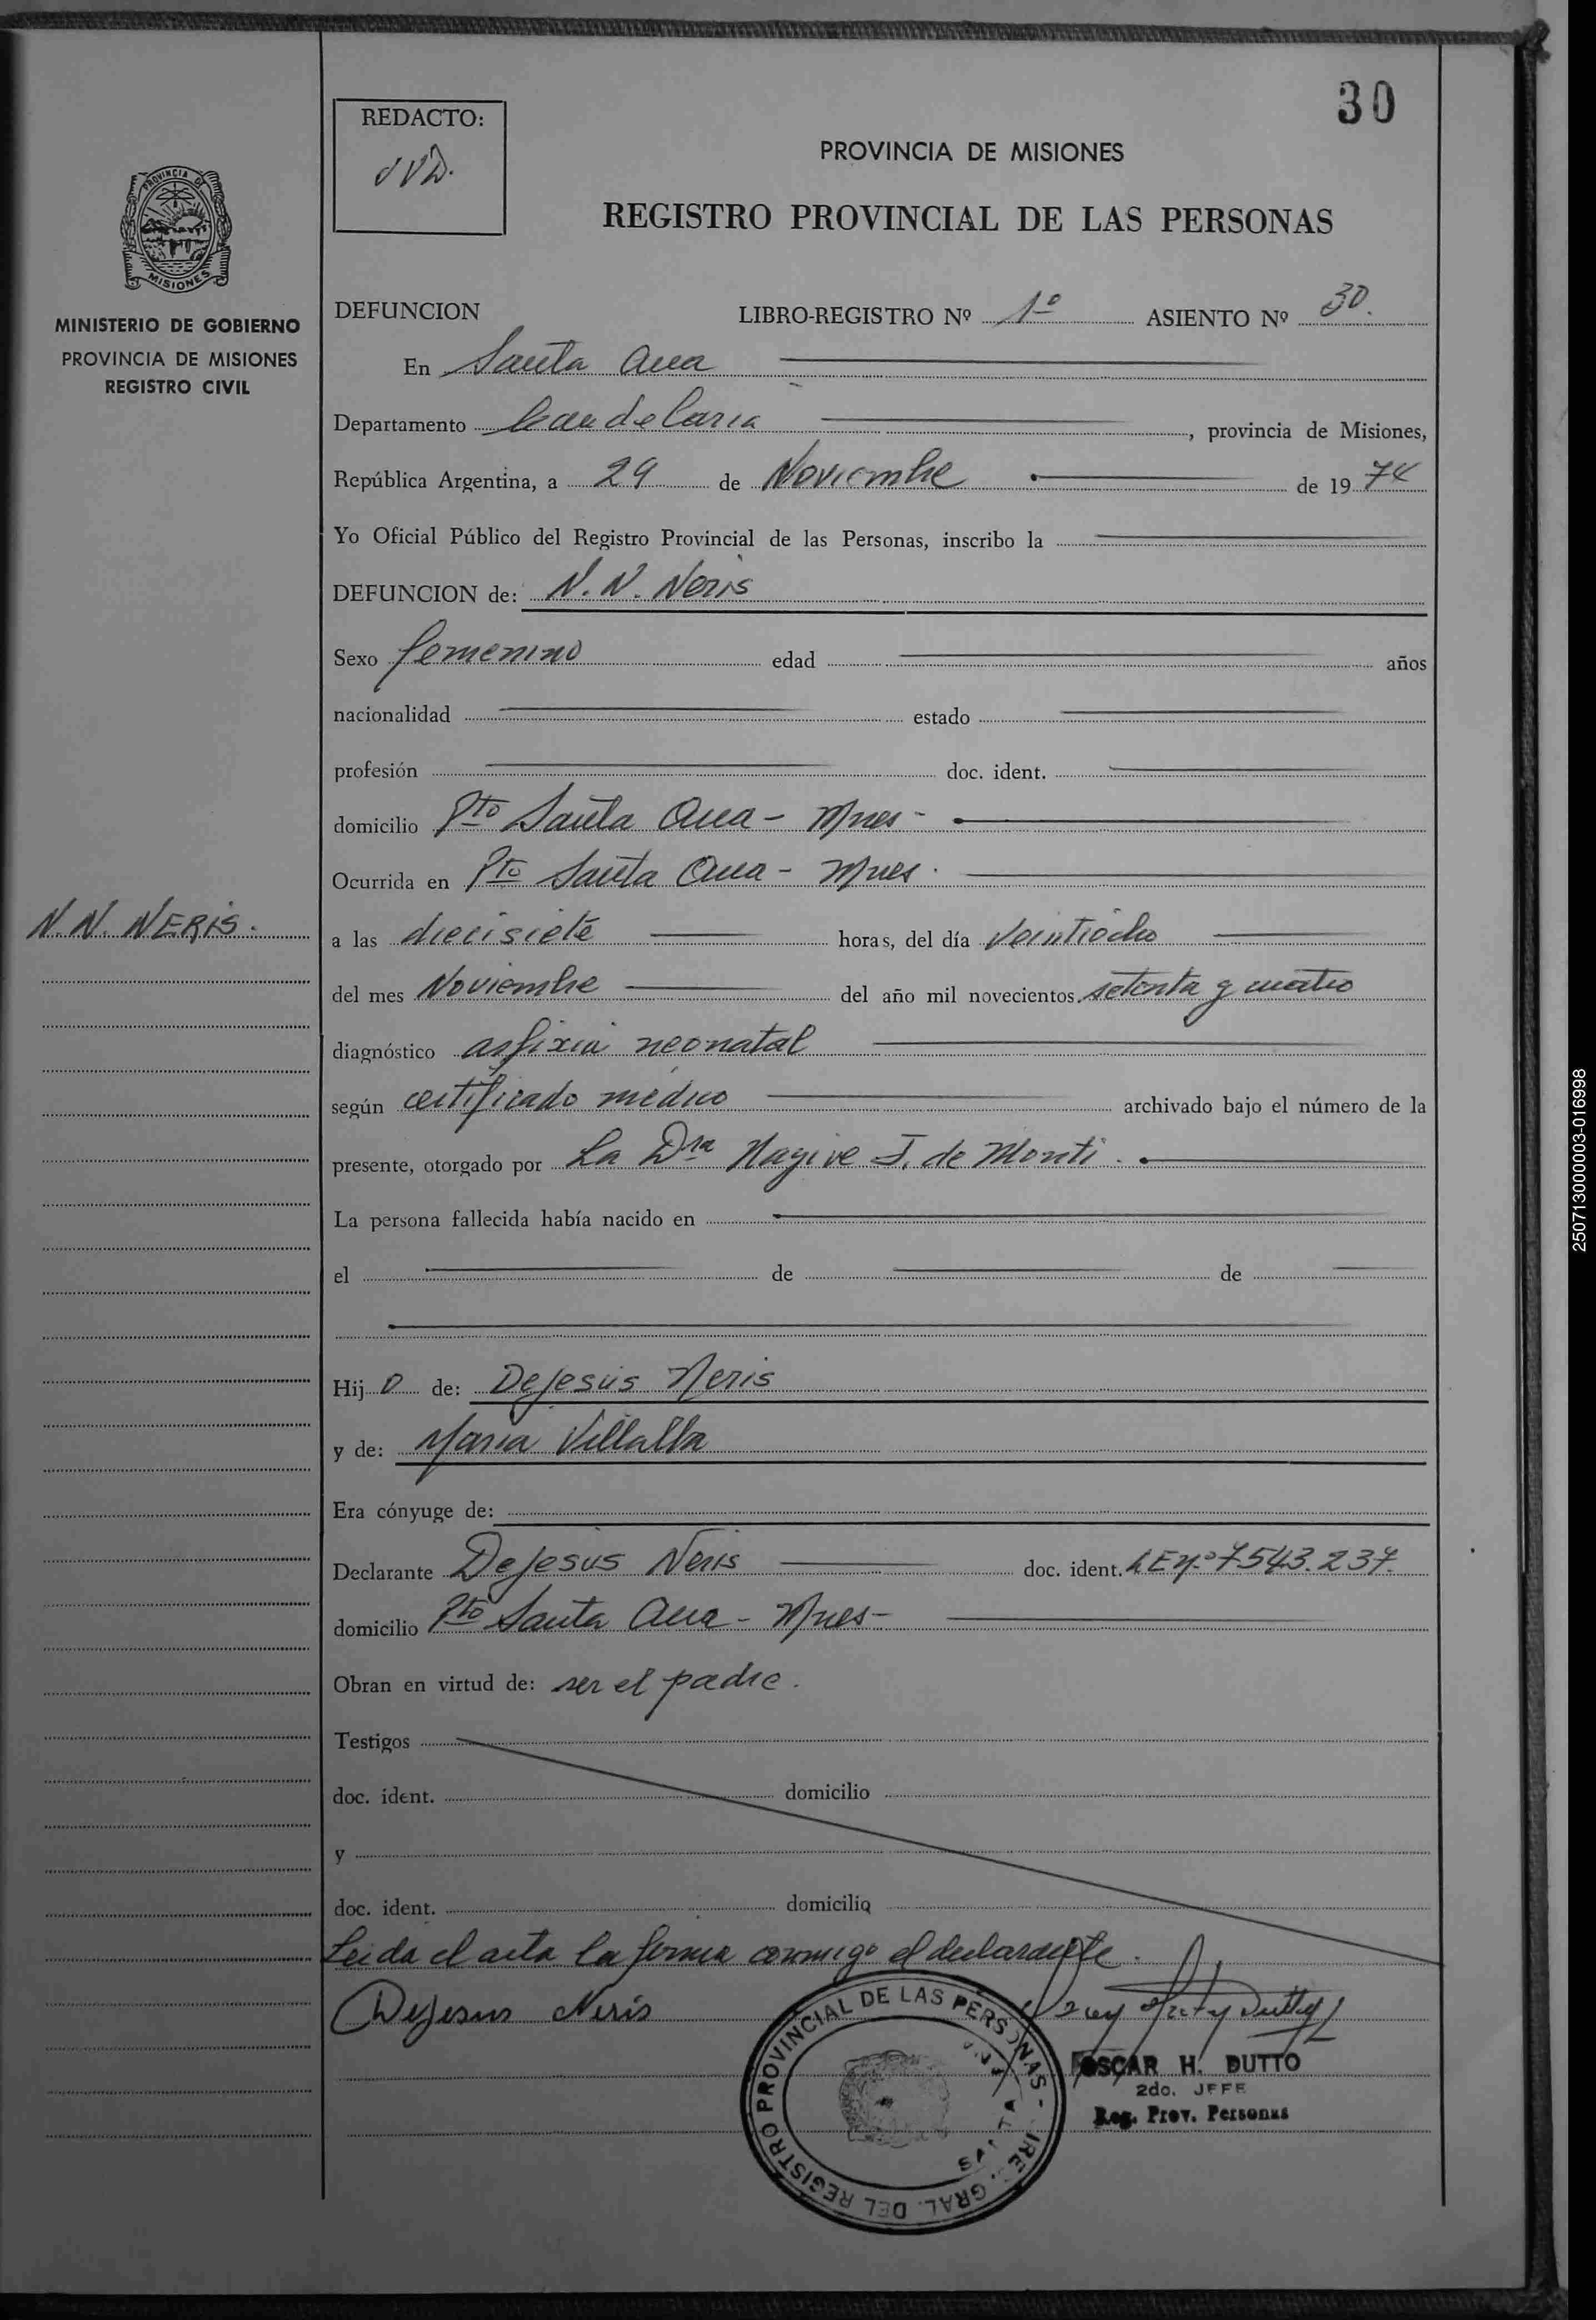 30
REDACTO:
PROVINCIA DE MISIONES
REGISTRO PROVINCIAL DE LAS PERSONAS
PROVINCIA DE
MISIONES
MINISTERIO DE GOBIERNO
PROVINCIA DE MISIONES
REGISTRO CIVIL
DEFUNCION LIBRO-REGISTRO Nº 1º ASIENTO Nº 30.
En Santa Ana
Departamento Candelaria, provincia de Misiones,
República Argentina, a 29 de Noviembre de 19 74
Yo Oficial Público del Registro Provincial de las Personas, inscribo la
DEFUNCION de: N. N. Neris
Sexo femenino edad años
nacionalidad estado
profesión doc. ident.
domicilio Pto Santa Ana - Mnes -
Ocurrida en Pto Santa Ana - Mnes.
N. N. NERIS.
a las diecisiete horas, del día Veintiocho
del mes Noviembre del año mil novecientos setenta y cuatro
diagnóstico asfixia neonatal
según certificado médico archivado bajo el número de la
presente, otorgado por La Dra Nagive J. de Monti.
La persona fallecida había nacido en
el de de
Hij o de: DeJesús Neris
y de: Maria Villalba
Era cónyuge de:
Declarante DeJesus Neris doc. ident. LE nº 7543.237.
domicilio Pto Santa Ana - Mnes -
Obran en virtud de: ser el padre.
Testigos
doc. ident. domicilio
y
doc. ident. domicilio
Leida el acta la firma conmigo el declarante.
DeJesus Neris
REGISTRO PROVINCIAL DE LAS PERSONAS - DIREC. GRAL. DEL
SANTA ANA
OSCAR H. DUTTO
2do. JEFE
Reg. Prov. Personas
250713000003-016998